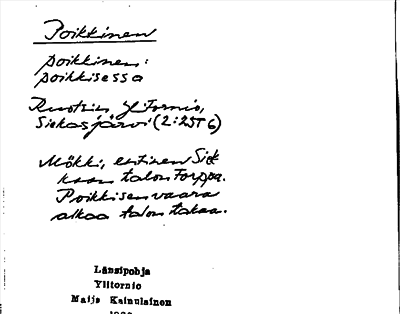 Poikkinen
poikkinen:
poikkisessa
Ruotsin Ylitornio,
Siekasjärvi (2:25T6)
Mökki, entinen Siek
kasen talon torppa.
Poikkisenvaara
alkaa talon takaa.
Länsipohja
Ylitornio
Maija Kainulainen